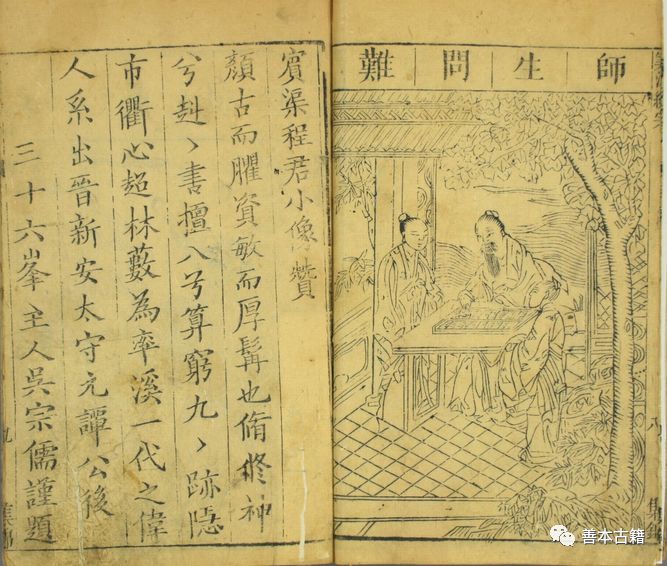 師生問難
賓渠程君小像贊
顏古而臞資敏而厚髯也脩脩神
兮赳〻書擅八兮算窮九〻跡隱
市衢心超林藪為率溪一代之偉
人系出晉新安太守元譚公後
三十六峯主人吳宗儒謹題
善本古籍